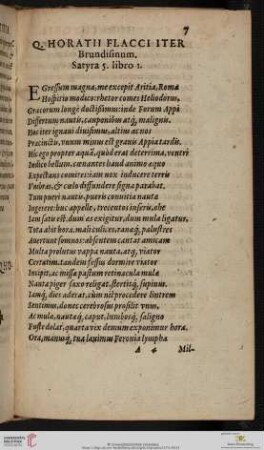 7
Q. HORATII FLACCI ITER
Brundisinum.
Satyra 5. libro 1.
EGressum magna, me excepit Aritia, Roma
Hospitio modico: rhetor comes Heliodorus,
Græcorum longè doctissimus: inde Forum Appi
Differtum nautis, cauponibus atq, malignis.
Hoc iter ignaui diuisimus, altius ac nos
Præcinctis, vnum: minus est grauis Appia tardis.
Hic ego propter aquā, quòd erat deterrima, ventri
Indico bellum, cœnantes haud animo æquo
Expectans comites: iam nox inducere terris
Vmbras, & cælo diffundere signa parabat.
Tum pueri nautis, pueris conuitia nautæ
Ingerere: huc appelle, trecentos inseris, ohe
Iam satis est. dum æs exigitur, dum mula ligatur,
Tota abit hora. mali culices, ranæq, palustres
Auertunt somnos: absentem cantat amicam
Multa prolutus vappa nauta, atq, viator
Certatim. tandem fessus dormire viator
Incipit, ac missæ pastum retinacula mulæ
Nauta piger saxo religat, stertitq, supinus.
Iamq, dies aderat, cùm nil procedere lintrem
Sentimus, donec cerebrosus prosilit vnus,
Ac mulæ, nautæq, caput, lumbosq, saligno
Fuste dolat, quarta vix demum exponimur hora.
Ora, manusq, tua lauimus Feronia lympha
A 4 Mil-